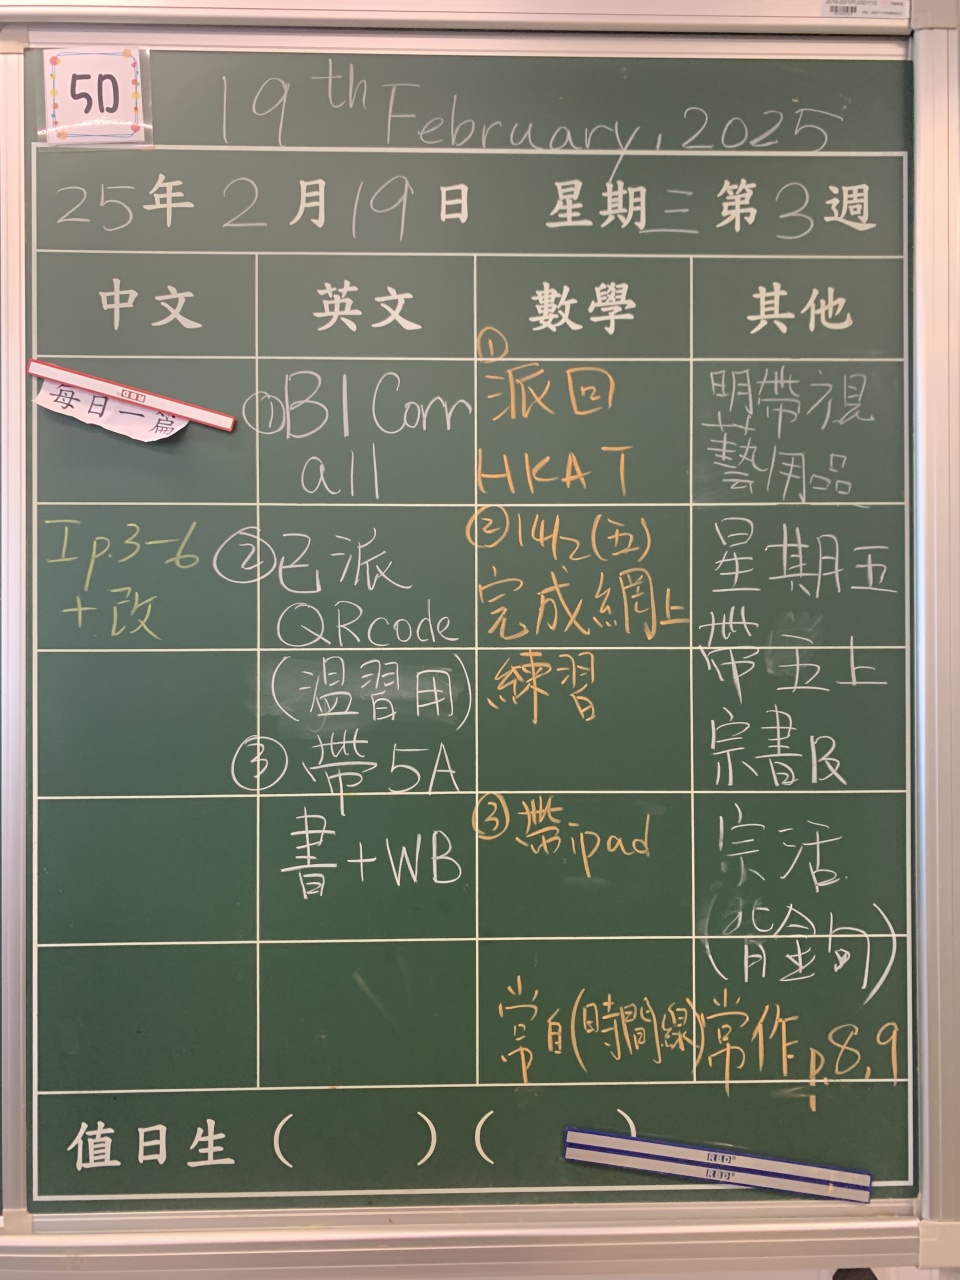 5D
19th February, 2025
25年2月19日 星期三第3週
中文 英文 數學 其他
每日一篇
Ip.3-6
+改
①B1 Corr
all
②已派
QR code
(溫習用)
③帶5A
書+WB
①
派回
HKAT
②14/2(五)
完成網上
練習
③帶ipad
常自(時間線)
明帶視
藝用品
星期五
帶五上
宗書及
宗活
(背金句)
常作p.8,9
值日生 ( ) ( )
RBD
RBD
RBD